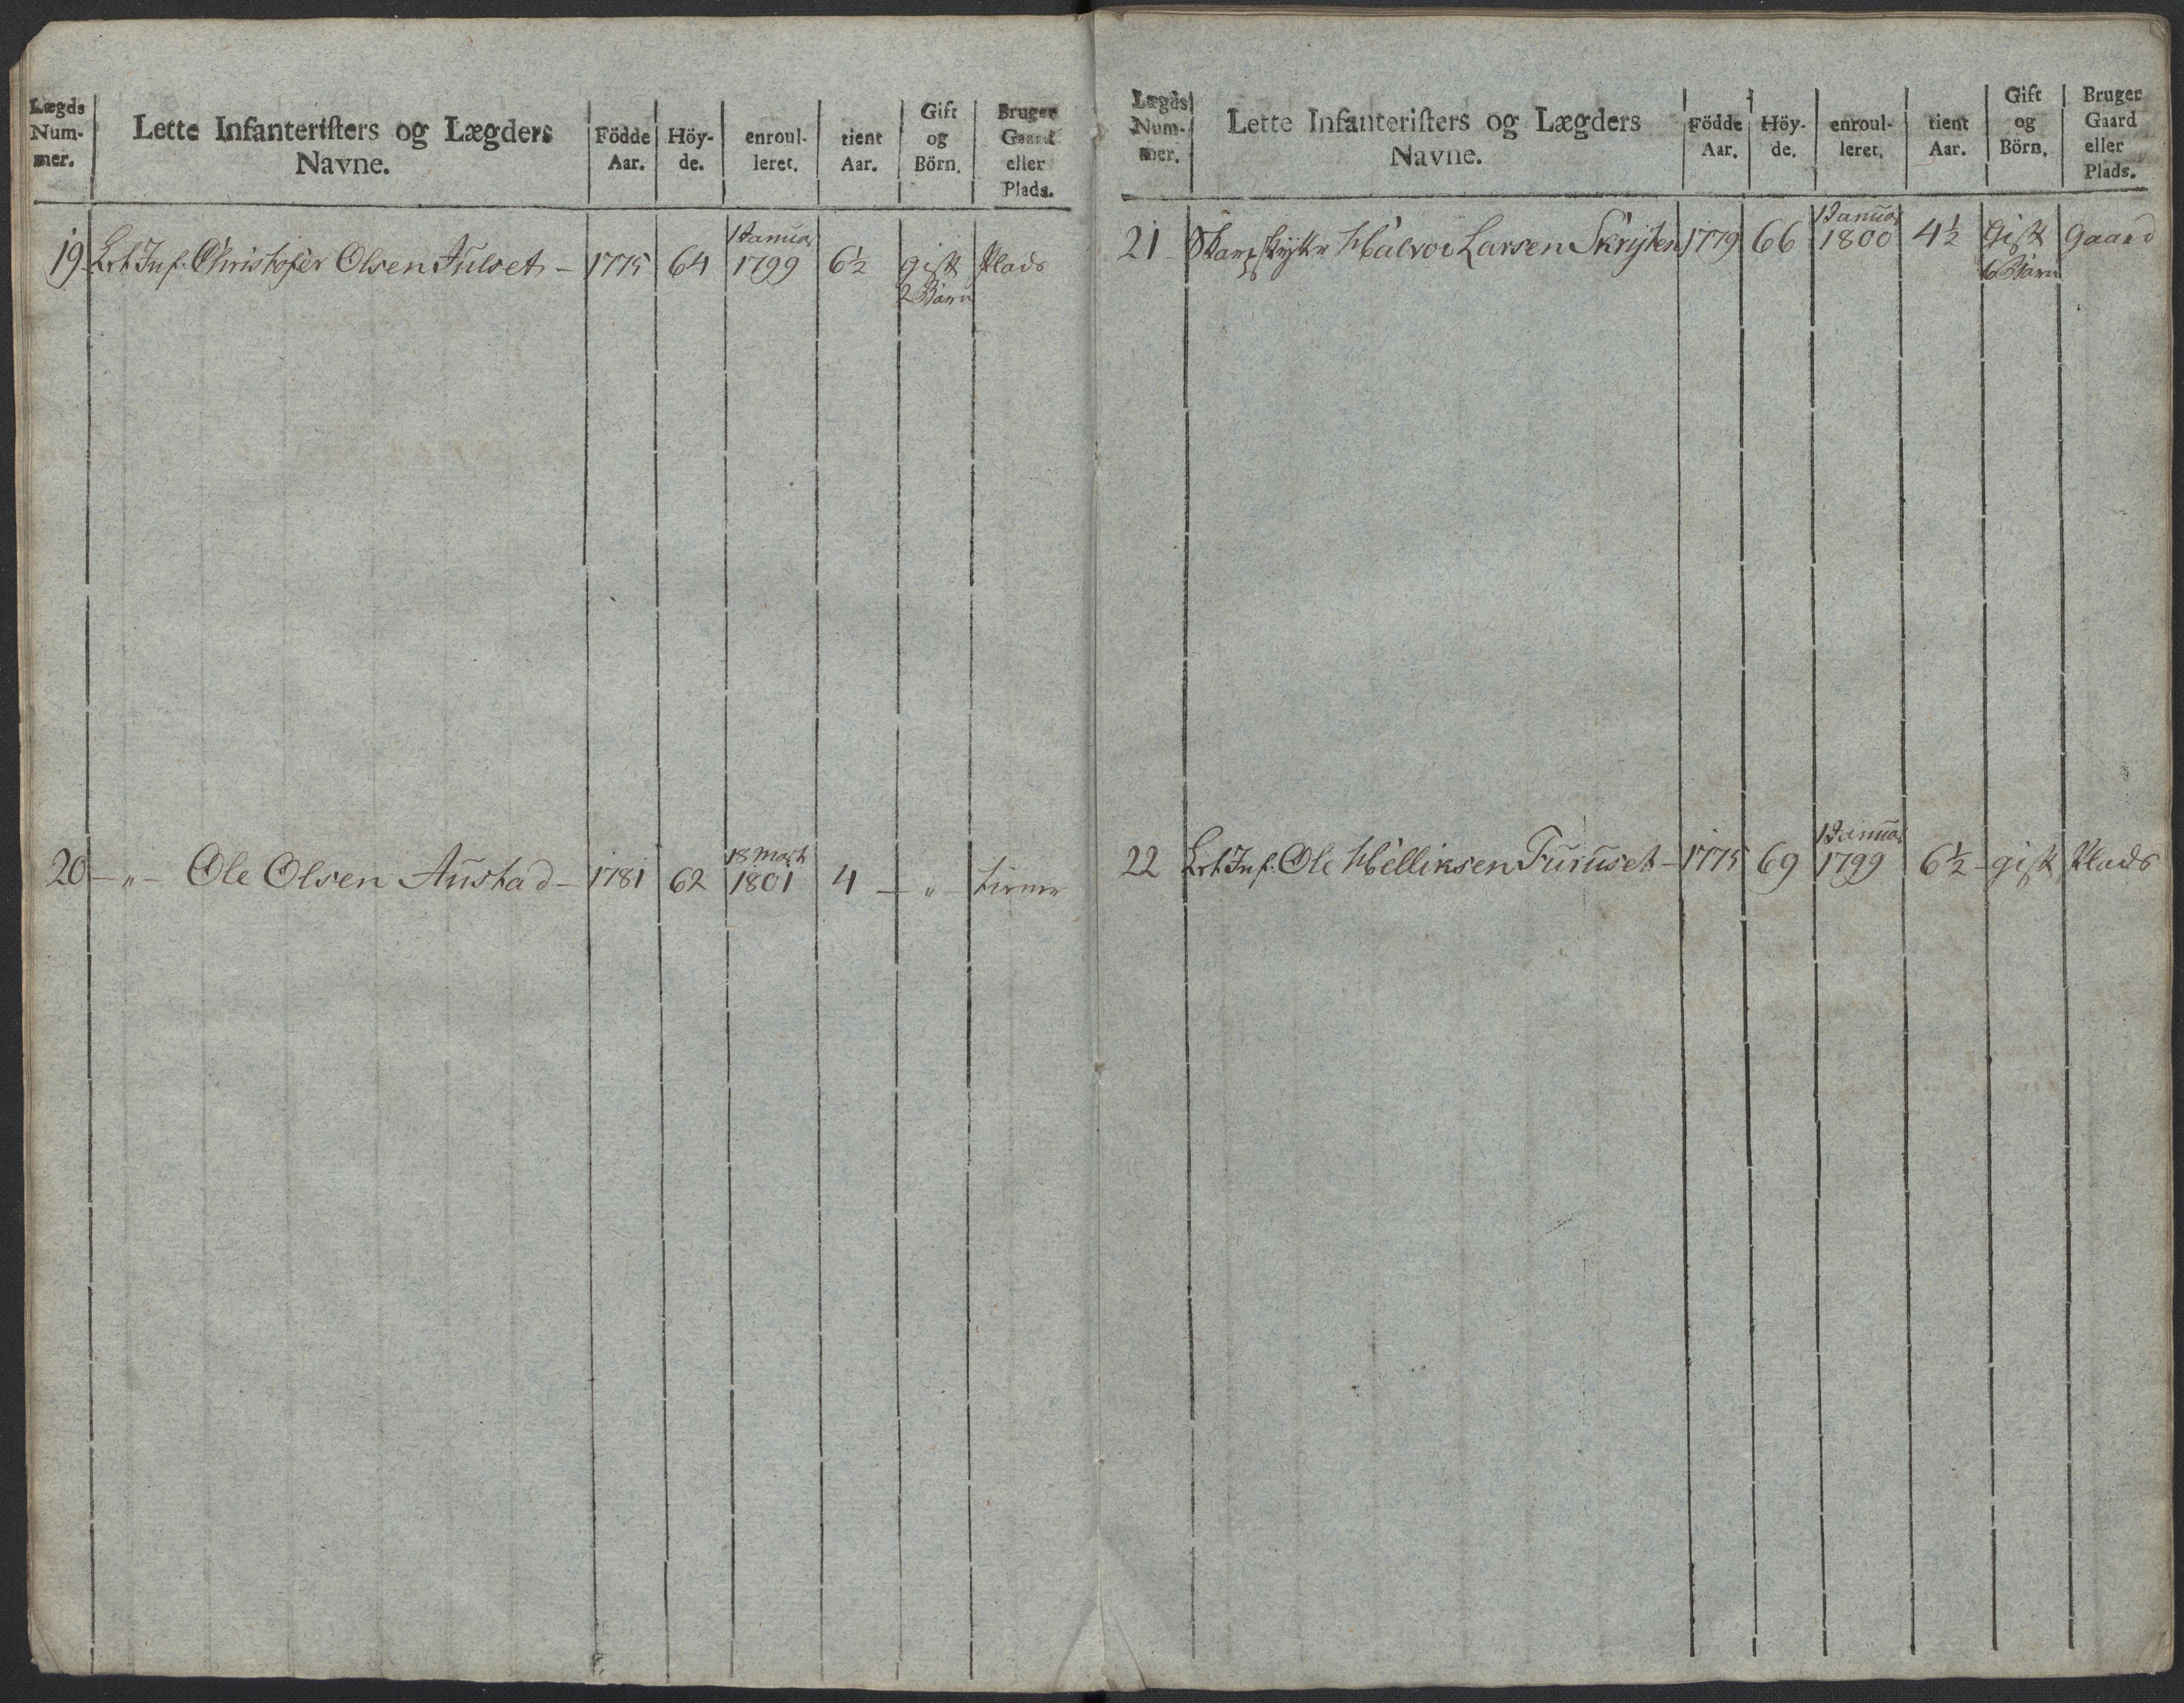 Lægds Num- mer. | Lette Infanteristers og Lægders Navne. | Födde Aar. | Höy- de. | enroul- leret. | tient Aar. | Gift og Börn. | Bruger Gaard eller Plads.
1 Januar
19 Let Inf. Christopher Olsen Julset - 1775 64 1799 6½ gift Plads
2 Børn
18 Marti
20 - " - Ole Olsen Austad - 1781 62 1801 4 - " - tiener
Lægds Num- mer. | Lette Infanteristers og Lægders Navne. | Födde Aar. | Höy- de. | enroul- leret. | tient Aar. | Gift og Börn. | Bruger Gaard eller Plads.
1 Januar
21 Skarpskytter Halvor Larsen 1779 66 1800 4½ Gift Gaard
6 Børn
1 Januar
22 Let Inf. Ole Helliksen Furuset - 1775 69 1799 6½ - gift Plads